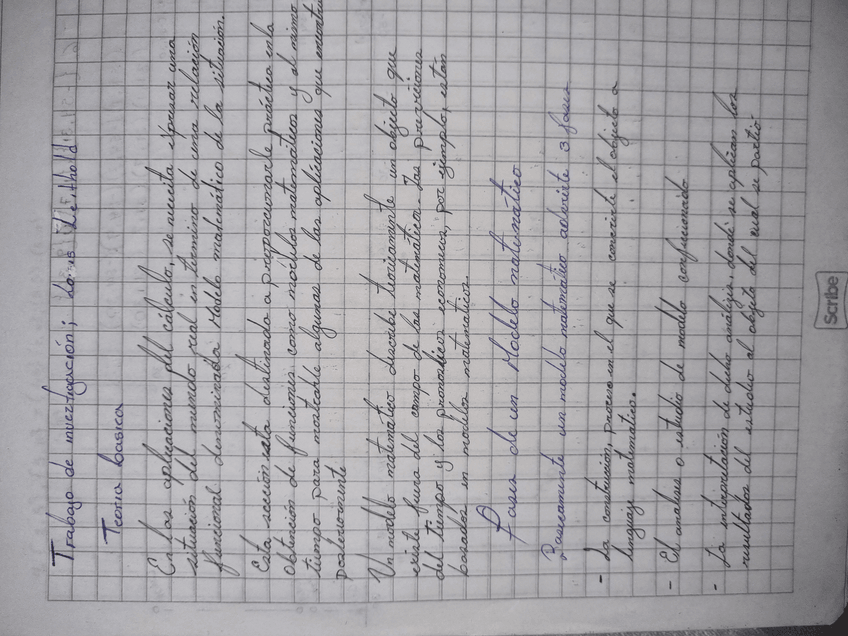 Trabajo de investigación; Louis Leithold
Teoria basica
En las aplicaciones del cálculo, se necesita expresar una
situación del mundo real en termino de una relación
funcional denominada Modelo matemático de la situación.
Esta sección esta destinada a proporcionarle práctica en la
obtención de funciones como modelos matematicos y al mismo
tiempo para mostrarle algunas de las aplicaciones que
posteriormente
Un modelo matemático describe teoricamente un objeto que
existe fuera del campo de las matematicas. Las previsiones
del tiempo y los pronosticos economicos, por ejemplo, estan
basados en modelos matematicos.
Fases de un Modelo matematico
Basicamente un modelo matemático advierte 3 fases
- La construcción, proceso en el que se convierte el objeto a
lenguaje matematico.
- El analisis o estudio de modelo confeccionado
- La interpretación de dicho análisis, donde se aplican los
resultados del estudio al objeto del cual se partió
Scribe